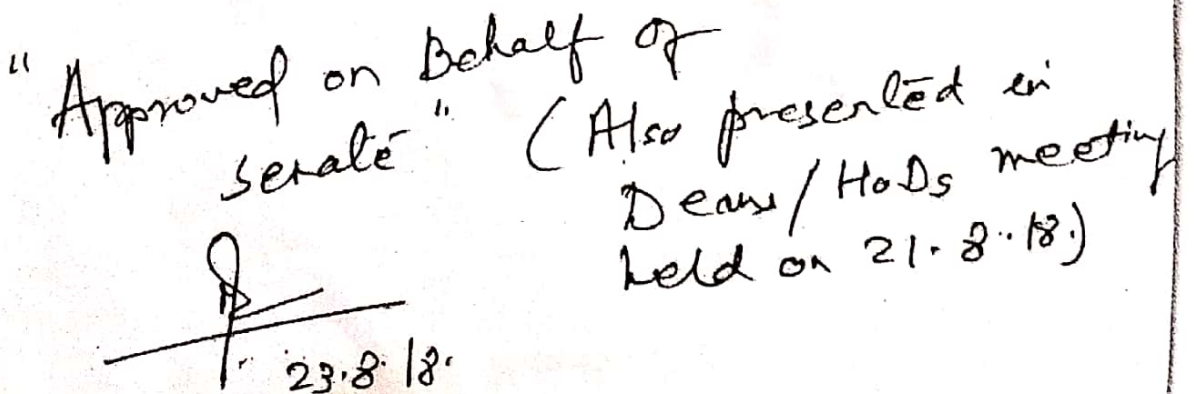 "Approved on Behalf of
senate"
(Also presented in
Deans/HoDs meeting
held on 21.8.18.)
23.8.18.